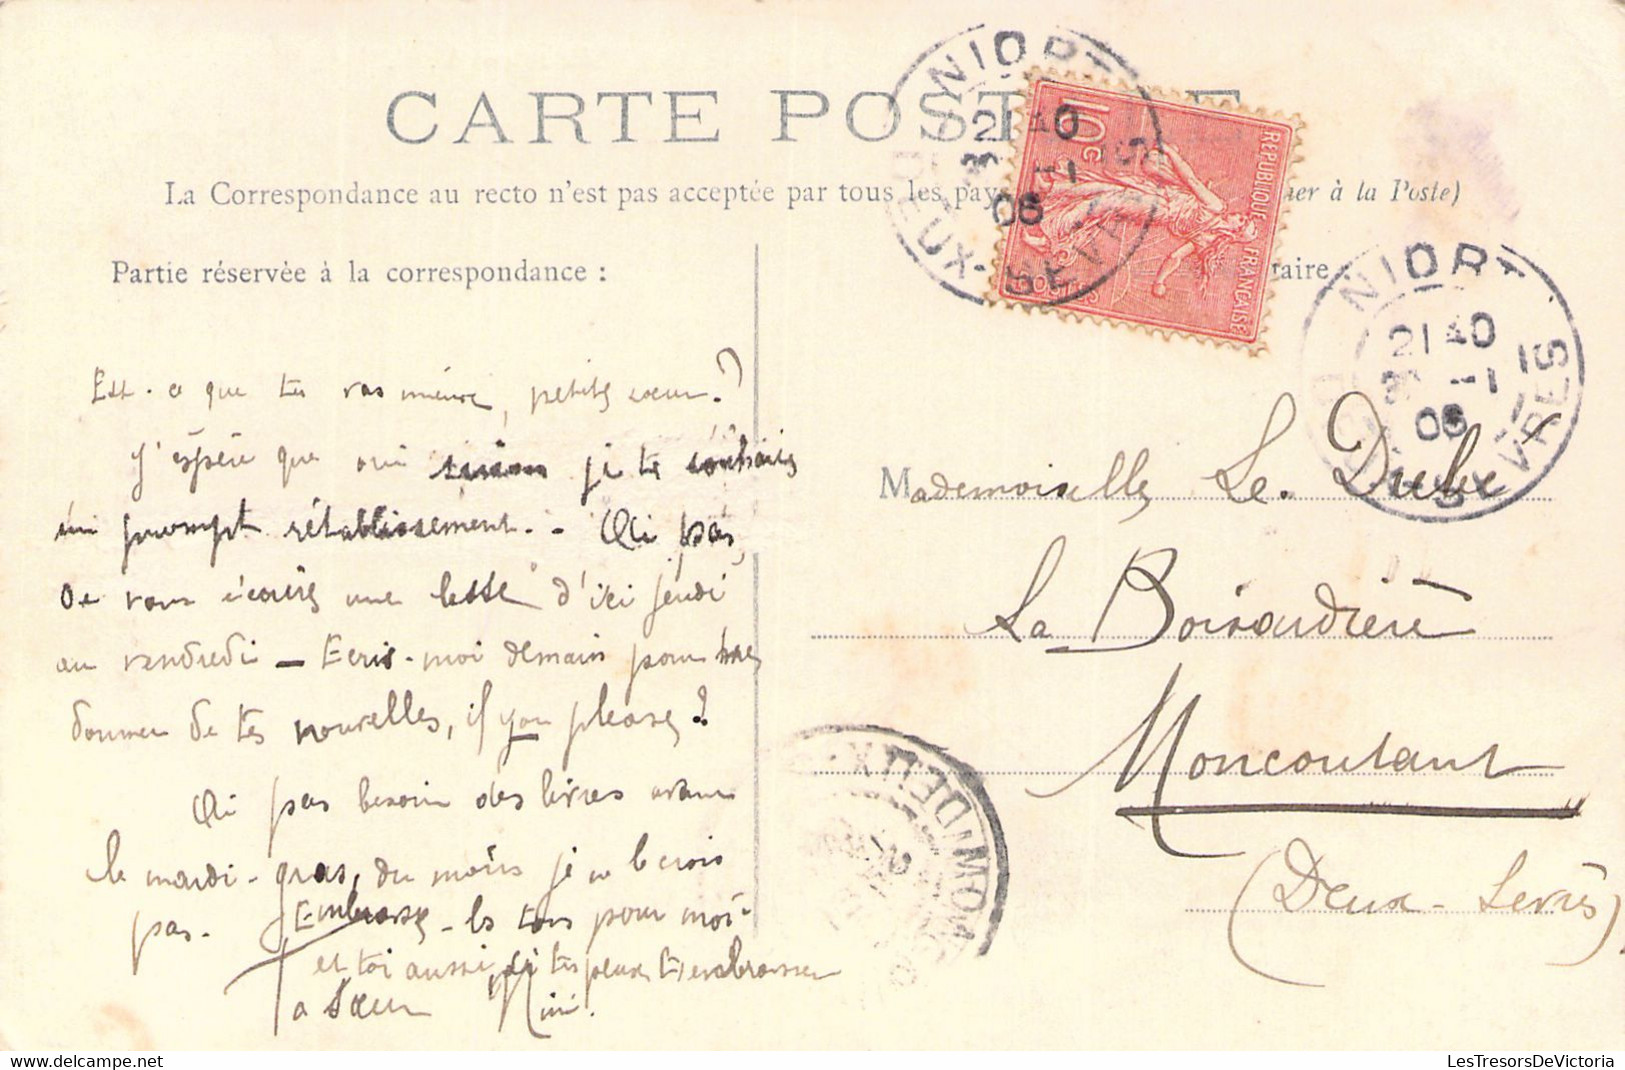 CARTE POSTALE
La Correspondance au recto n'est pas acceptée par tous les pays er à la Poste)
Partie réservée à la correspondance :
taire
NIORT
21 40
3 -1
06
DEUX-SEVRES
10c
REPUBLIQUE FRANÇAISE
POSTES
NIORT
21 40
3 -1
06
DEUX-SEVRES
Est-ce que tu vas mieux, petite sœur ?
J'espère que oui sinon je te souhaite
un prompt rétablissement. - Oh pas
De vous écrire une lettre d'ici jeudi
ou vendredi — Ecris-moi demain pour me
donner de tes nouvelles, if you please ?
pas besoin des livres avant
le mardi-gras, du moins je ne le crois
pas. Embrasse-les tous pour moi
et toi aussi, si tu peux t'embrasser
Ta sœur Mimi.
Mademoiselle Le. Dube
La Boisaudière
Moncoutant
(Deux-Sevres)
LesTresorsDeVictoria